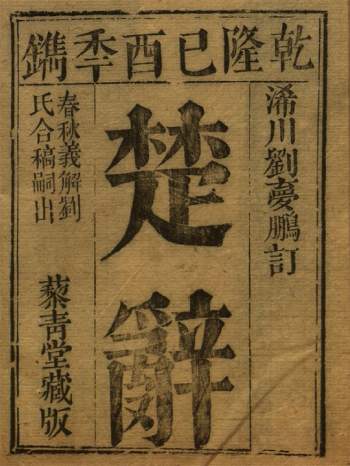 乾隆己酉秊鐫
浠川劉夢鵬訂
楚辭
春秋義解劉
氏合稿嗣出
藜青堂藏版